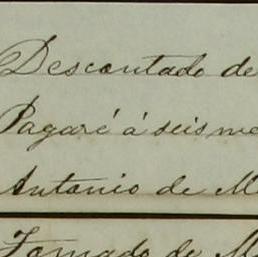 Descontado de
Pagaré á seis me
Antonio de M
Tomado de M